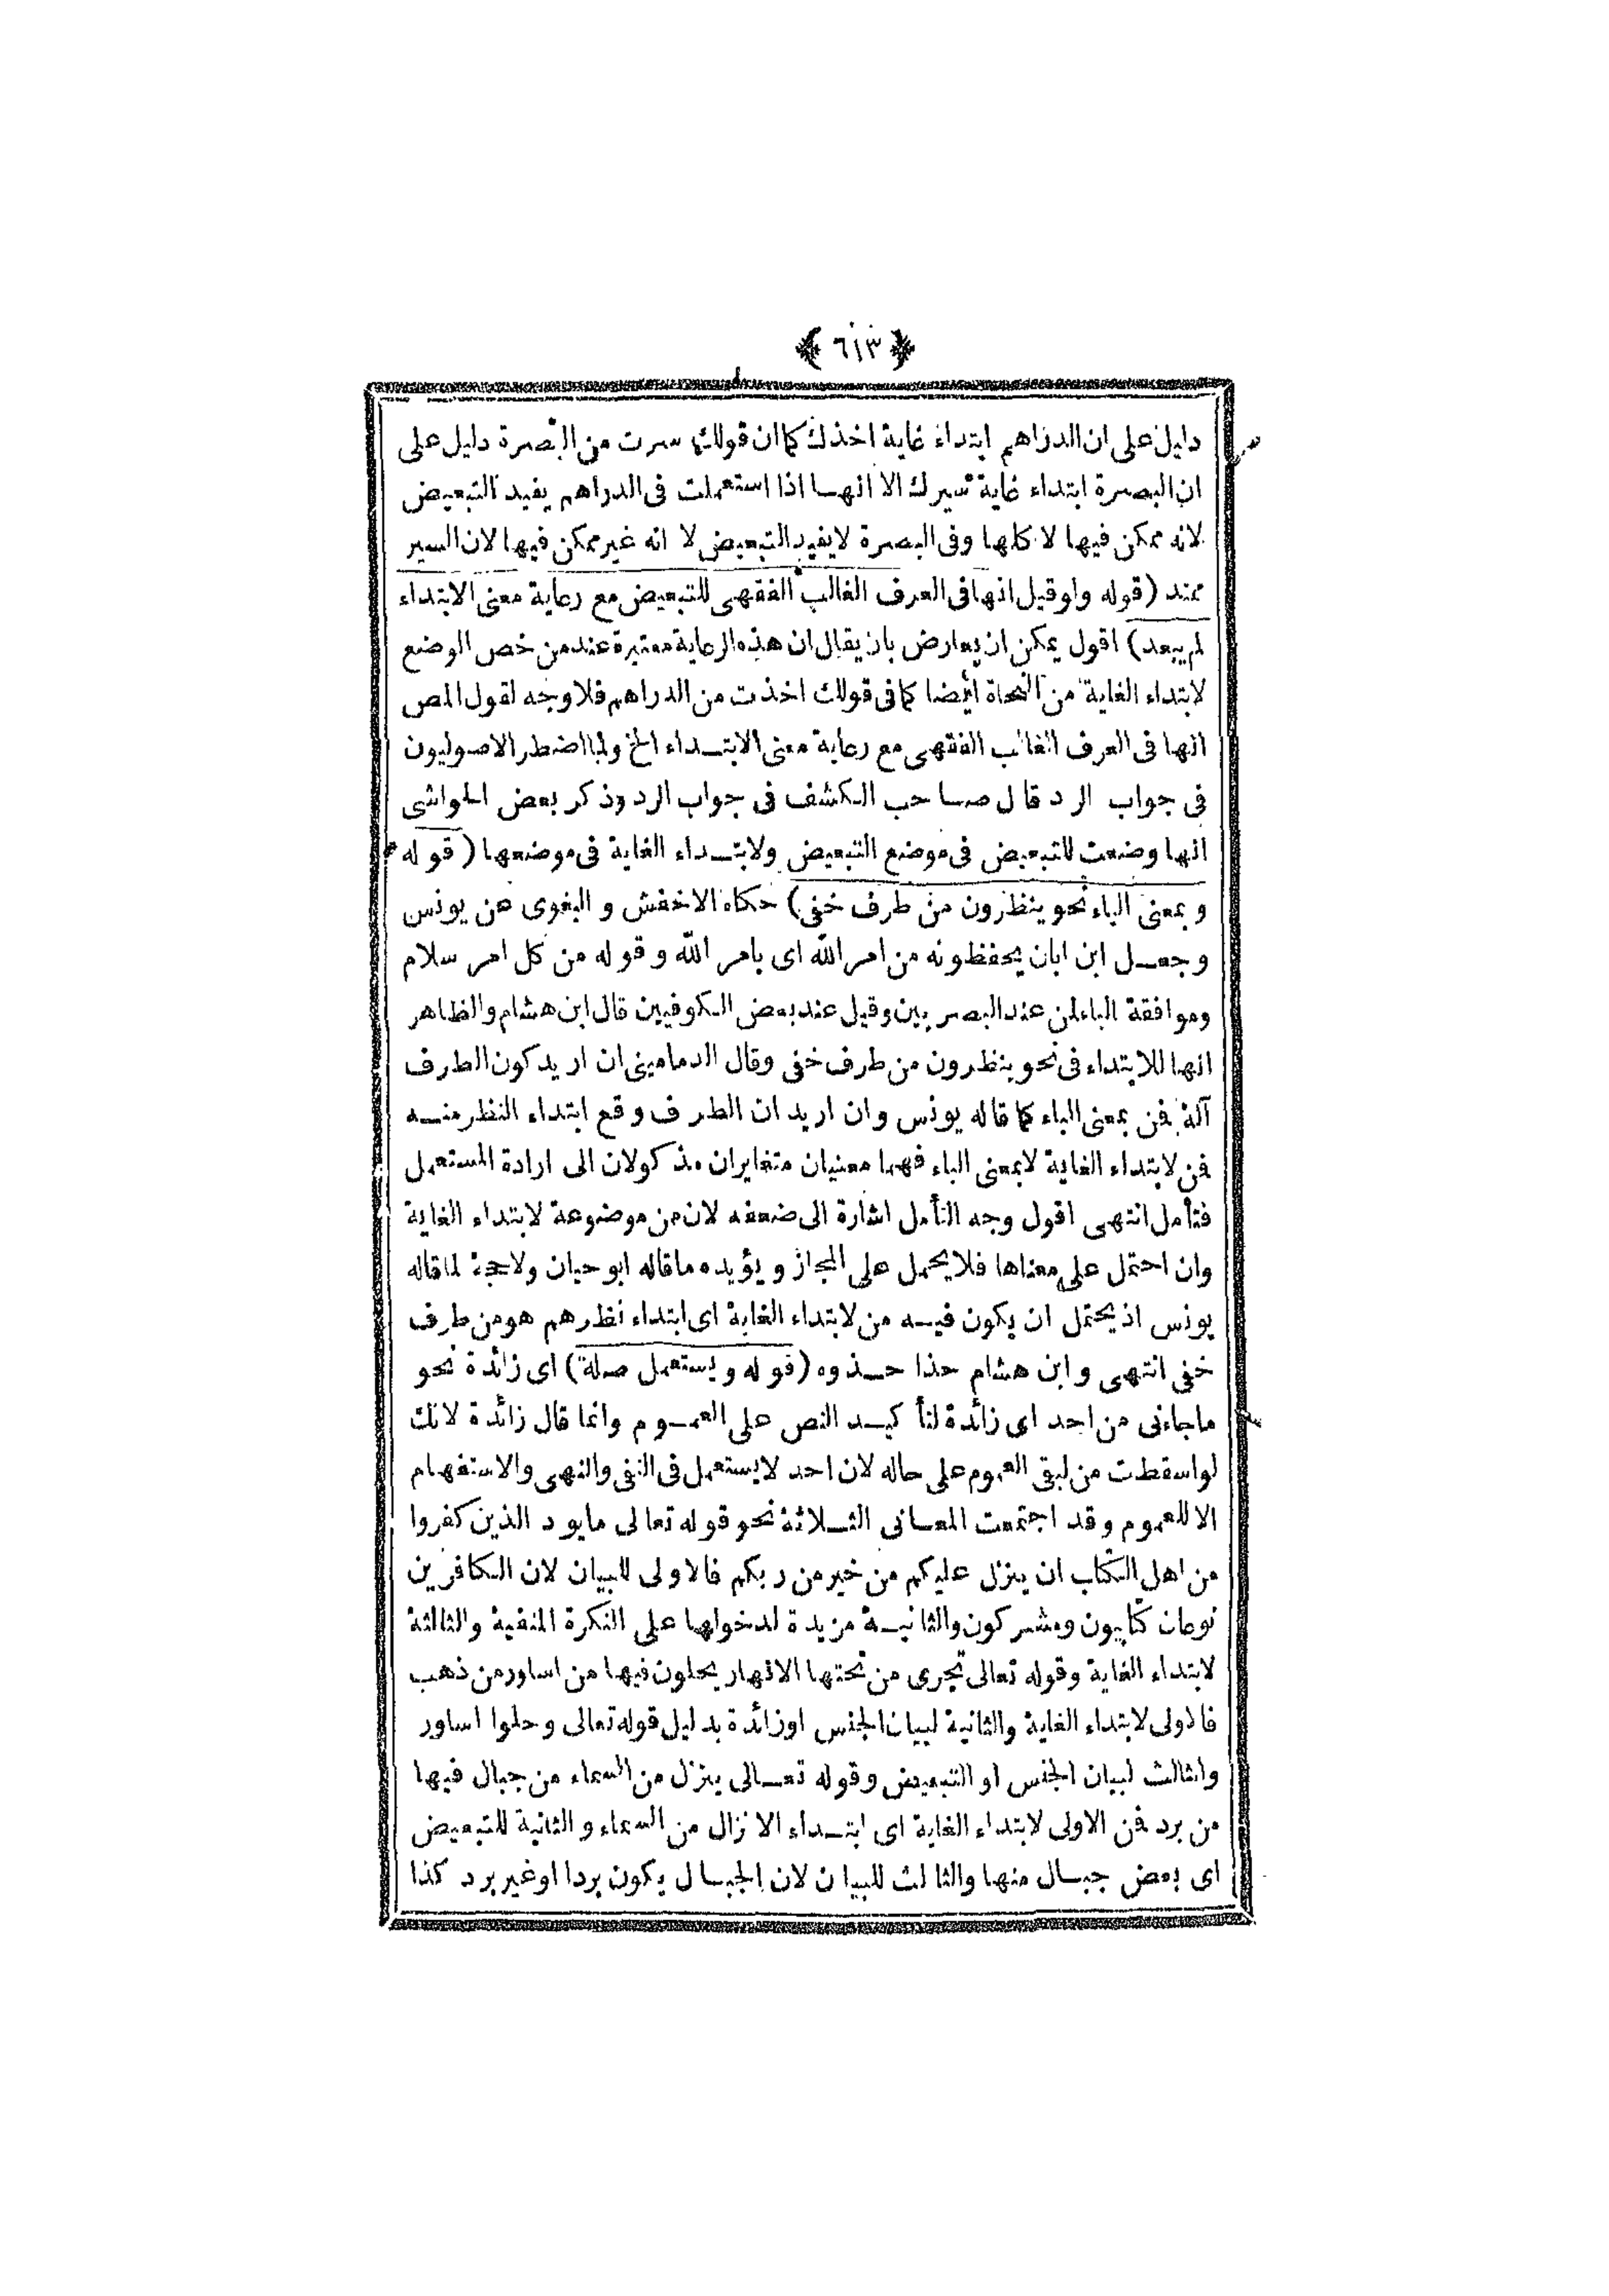 ﴿ ٦١٣ ﴾
دليل على ان الدراهم ابتداء غاية اخذك كما ان قولك سرت من البصرة دليل على
ان البصرة ابتداء غاية سيرك الا انهـا اذا استعملت فى الدراهم يفيد التبعيض
لانه ممكن فيها لا كلها وفى البصرة لايفيد التبعيض لا انه غير ممكن فيها لان السير
ممتد (قوله ولوقيل انها فى العرف الغالب الفقهى للتبعيض مع رعاية معنى الابتداء
لم يبعد) اقول يمكن ان يعارض بان يقال ان هذه الرعاية معتبرة عند من خص الوضع
لابتداء الغاية من النحاة أيضا كما فى قولك اخذت من الدراهم فلا وجه لقول المص
انها فى العرف الغالب الفقهى مع رعاية معنى الابتـداء الخ ولما اضطر الاصوليون
فى جواب الرد قال صاحب الكشف فى جواب الرد وذكر بعض الحواشى
انها وضعت للتبعيض فى موضع التبعيض ولابتـداء الغاية فى موضعها (قوله
و بمعنى الباء نحو ينظرون من طرف خفى) حكاه الاخفش و البغوى عن يونس
وجعـل ابن ابان يحفظونه من امر الله اى بامر الله وقوله من كل امر سلام
وموافقة الباء لمن عند البصريين وقيل عند بعض الكوفيين قال ابن هشام والظاهر
انها للابتداء فى نحو ينظرون من طرف خفى وقال الدمامينى ان اريد كون الطرف
آلة فمن بمعنى الباء كما قاله يونس وان اريد ان الطرف وقع ابتداء النظر منـه
فمن لابتداء الغاية لابمعنى الباء فهما معنيان متغايران مذكولان الى ارادة المستعمل
فتأمل انتهى اقول وجه التأمل اشارة الى ضعفه لان من موضوعة لابتداء الغاية
وان احتمل على معناها فلا يحمل على المجاز و يؤيده ماقاله ابوحيان ولاحجة لماقاله
يونس اذ يحتمل ان يكون فيـه من لابتداء الغاية اى ابتداء نظرهم هو من طرف
خفى انتهى وابن هشام حذا حـذوه (قوله ويستعمل صلة) اى زائدة نحو
ماجاءنى من احد اى زائدة لتأكيـد النص على العمـوم وانما قال زائدة لانك
لواسقطت من لبقى العموم على حاله لان احد لايستعمل فى النفى والنهى والاستفهام
الا للعموم وقد اجتمعت المعـانى الثـلاثة نحو قوله تعالى مايود الذين كفروا
من اهل الكتاب ان ينزل عليكم من خير من ربكم فالاولى للبيان لان الكافرين
نوعان كتابيون ومشركون والثانيـة مزيدة لدخولها على النكرة المنفية والثالثة
لابتداء الغاية وقوله تعالى تجرى من تحتها الانهار يحلون فيها من اساور من ذهب
فالاولى لابتداء الغاية والثانية لبيان الجنس اوزائدة بدليل قوله تعالى وحلوا اساور
والثالث لبيان الجنس او التبعيض وقوله تعـالى ينزل من السماء من جبال فيها
من برد فمن الاولى لابتداء الغاية اى ابتـداء الانزال من السماء والثانية للتبعيض
اى بعض جبـال منها والثالث للبيان لان الجبـال يكون بردا اوغير برد كذا